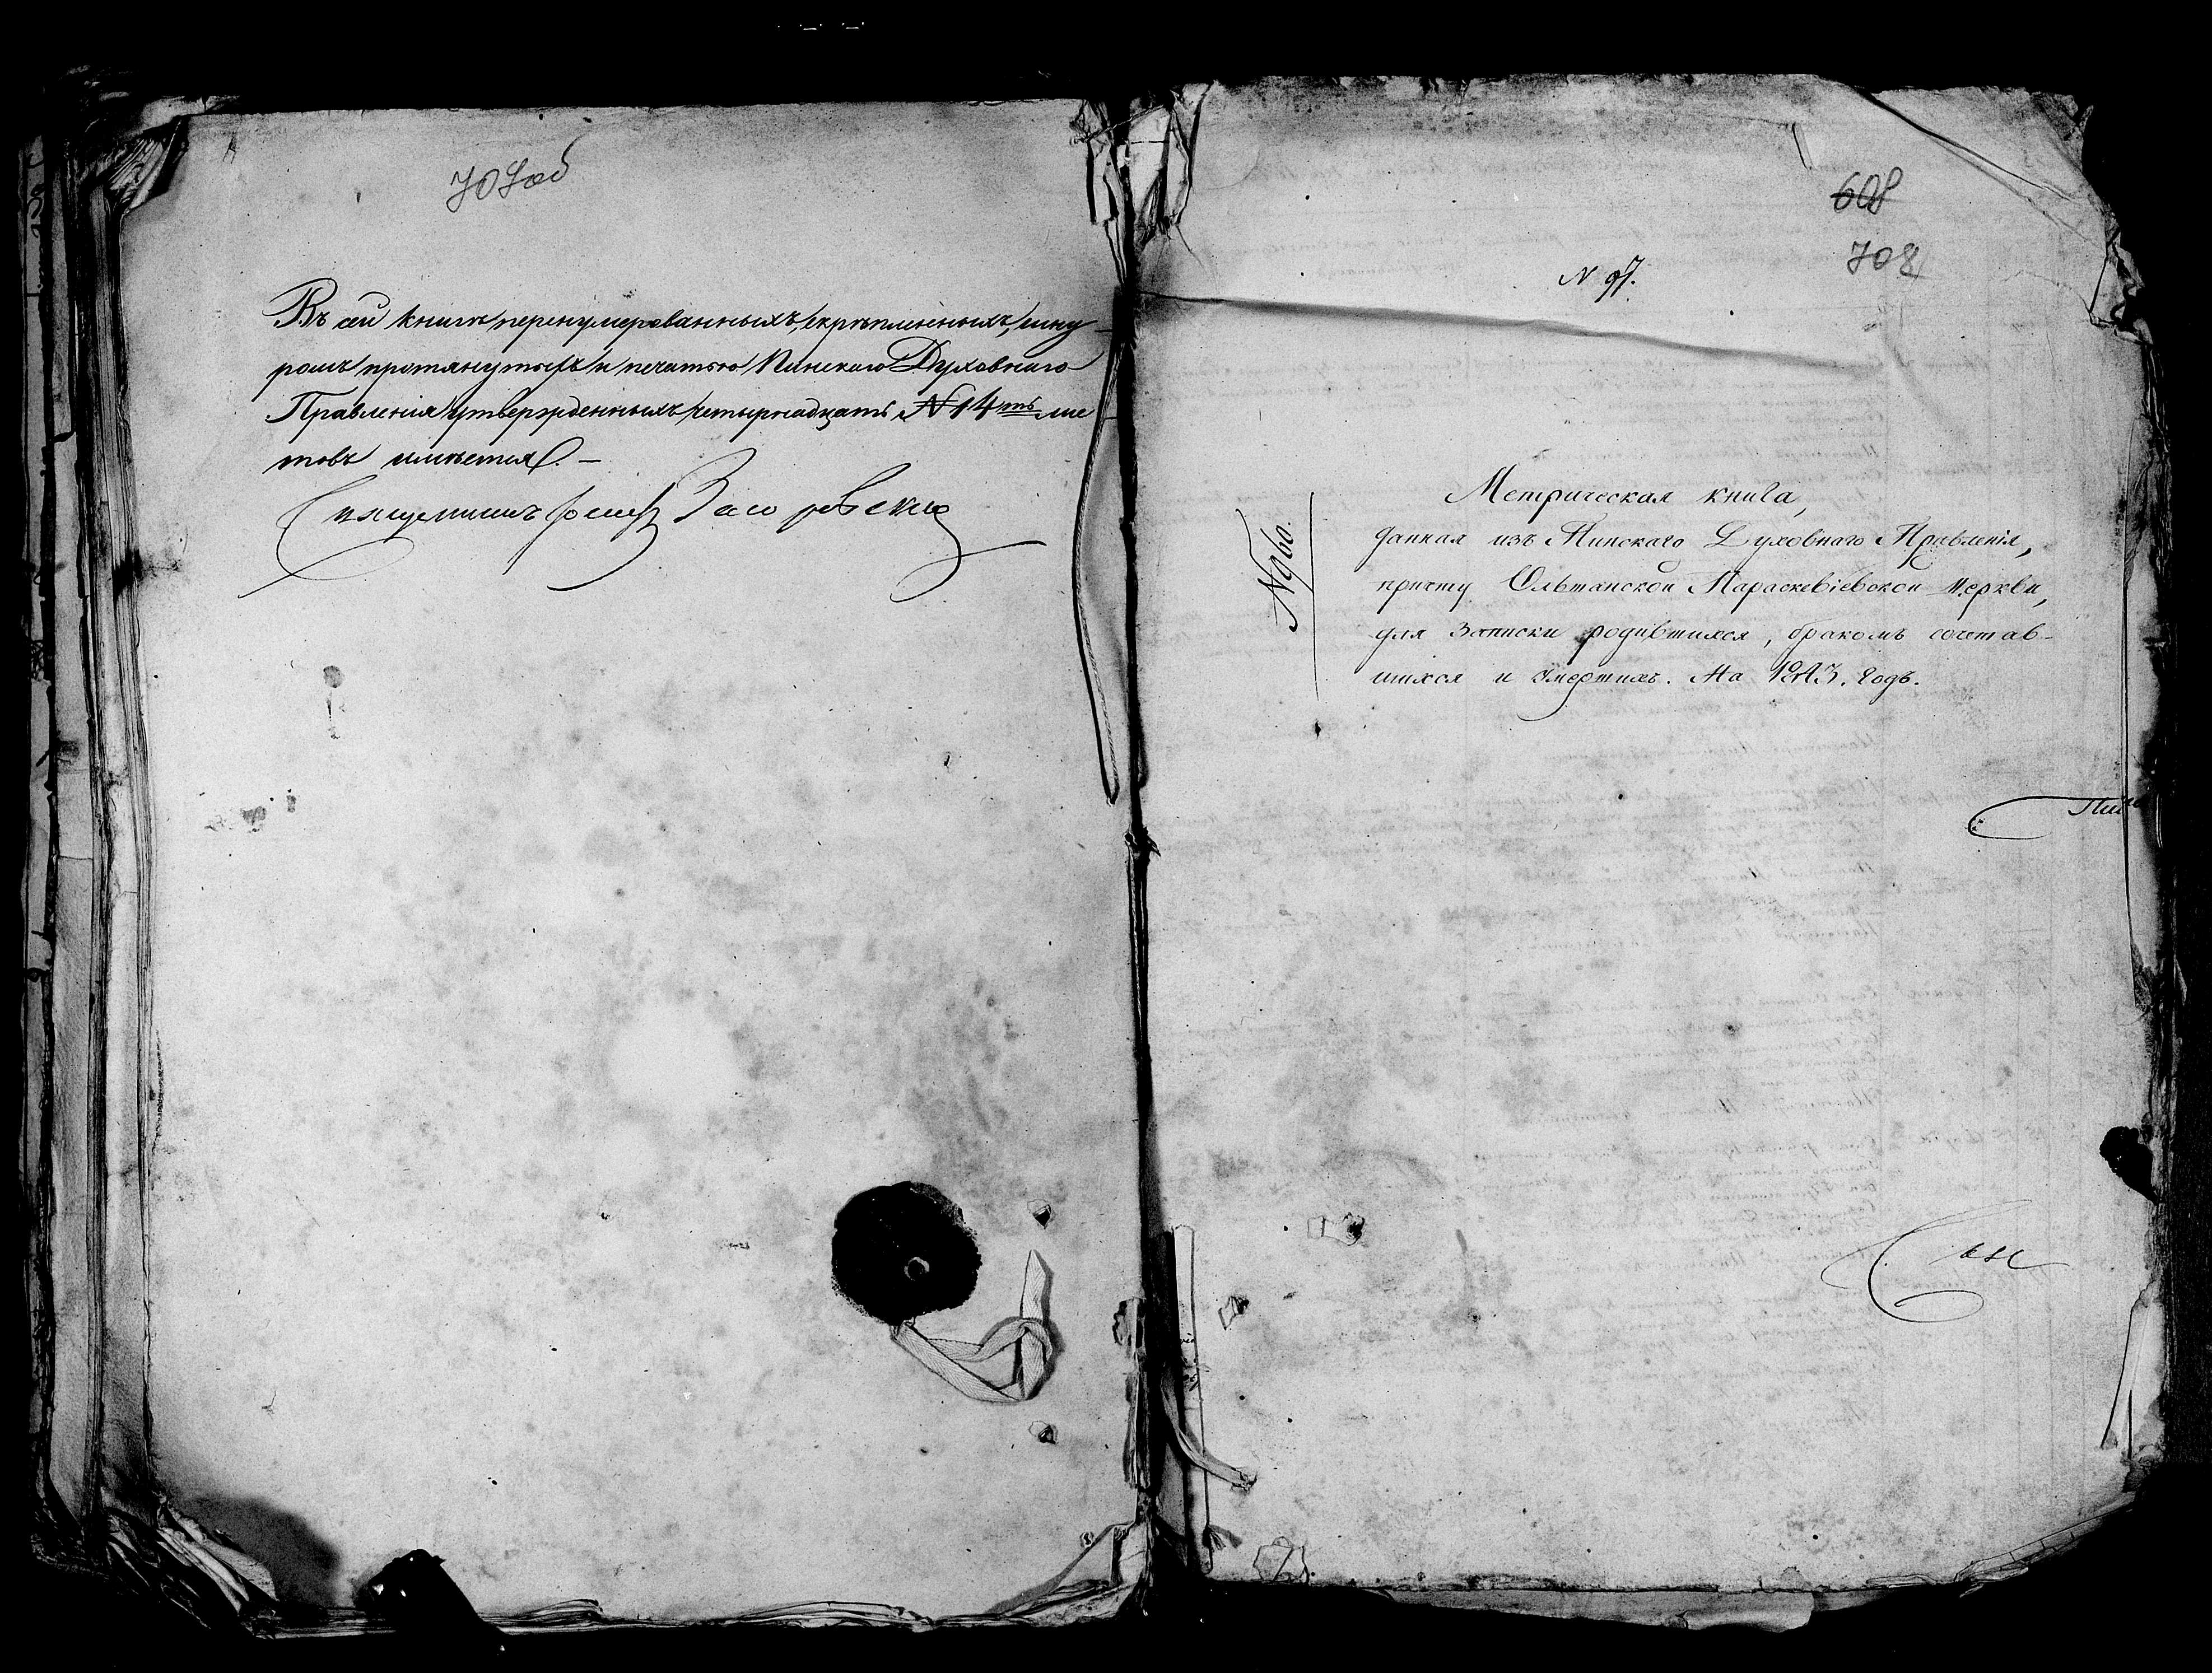 707 об
Въ сей книгѣ перенумерованныхъ, скрѣпленныхъ, шну
ромъ протянутыхъ и печатью Пинскаго Духовнаго
Правленія утвержденныхъ четырнадцать № 14ть лис
товъ имѣется. —
Священникъ
608
708
N 97.
N960.
Метрическая книга,
данная изъ Пинскаго Духовнаго Правленія,
причту Ольшанской Параскевіевской Церкви,
для записки родившихся, бракомъ сочетав-
шихся и умершихъ. На 1843. годъ.